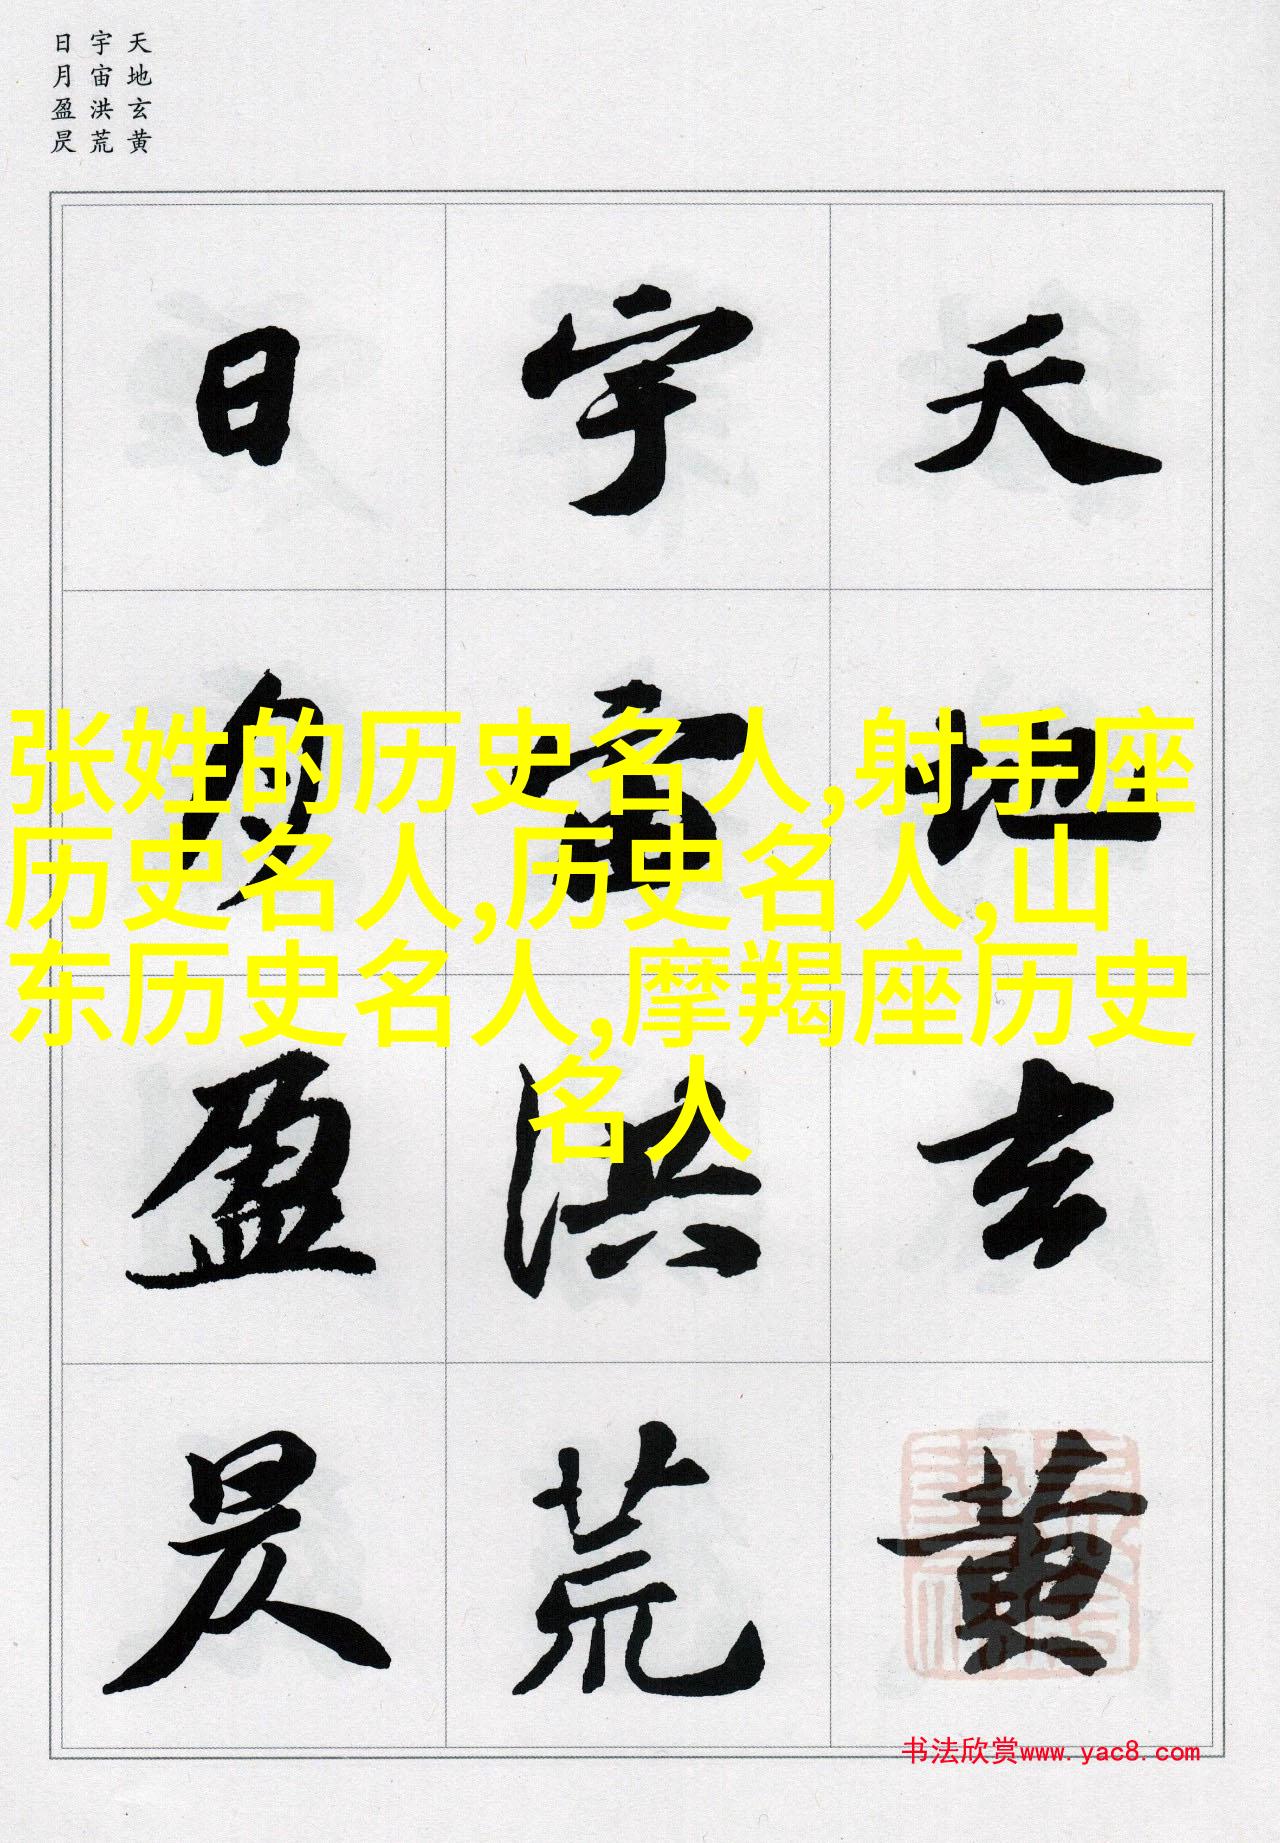 天地玄黄
宇宙洪荒
日月盈昃
天地玄黄
宇宙洪荒
日月盈昃
张姓的历史名人,射手座
历史名人,历史名人,山
东历史名人,摩羯座历史
名人
书法欣赏www.yac8.com